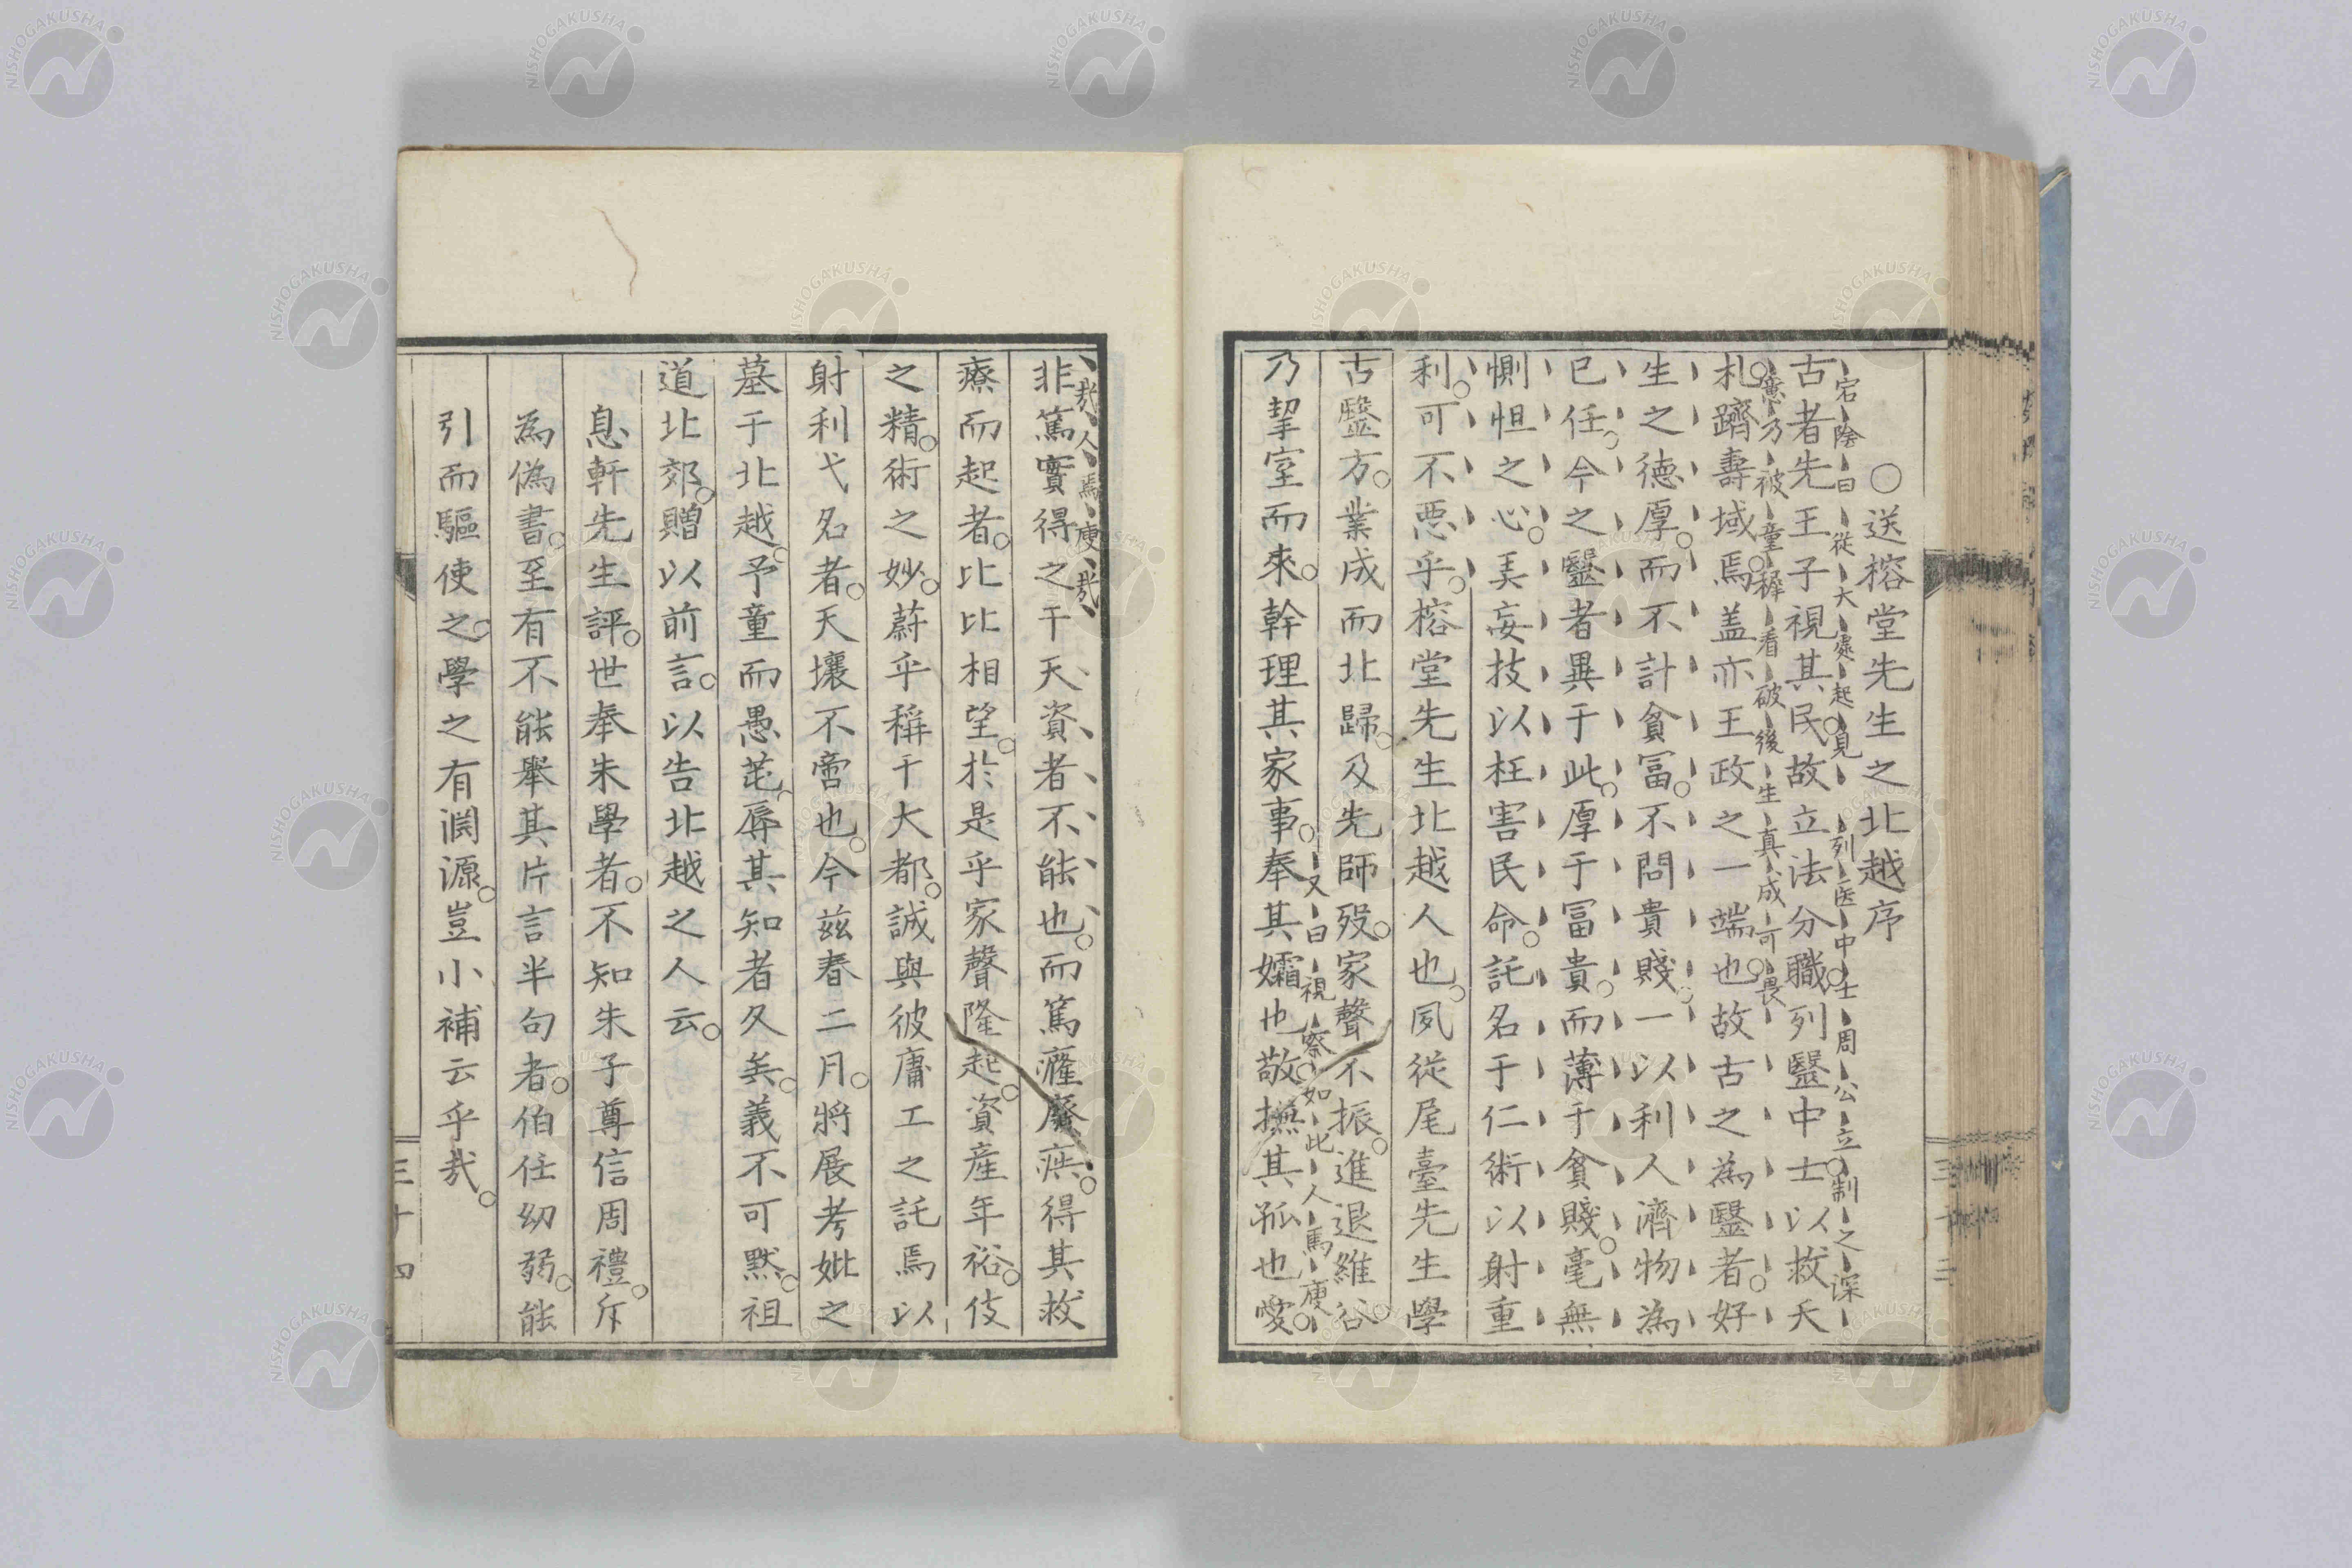 ○送榕堂先生之北越序
古者先王子視其民。故立法分職。列醫中士。以救夭
宕陰曰從大處起見列医中士周公立制之深
札。躋壽域焉。蓋亦王政之一端也。故古之為醫者。好
意乃被童穉看破後生真成可畏
生之德厚。而不計貧冨。不問貴賤。一以利人濟物為
已任。今之醫者異于此。厚于冨貴。而薄于貧賤。毫無
惻怛之心。妄技以枉害民命。託名于仁術以射重
利。可不悪乎。榕堂先生北越人也。夙從尾臺先生學
古醫方。業成而北歸。及先師歿。家聲不振。進退維谷。
又曰視察如此人焉廋
乃挈室而來。幹理其家事。奉其孀也敬。撫其孤也愛。
哉人焉廋哉
非篤實得之于天資者不能也。而篤癃廢疾。得其救
療而起者。比比相望。於是乎家聲隆起。資産年裕。伎
之精。術之妙。蔚乎稱于大都。誠與彼庸工之託焉以
射利弋名者。天壤不啻也。今茲春二月。將展考妣之
墓于北越。予童而愚芘。辱其知者久矣。義不可默。祖
道北郊。贈以前言。以告北越之人云。
息軒先生評。世奉朱學者。不知朱子尊信周禮。斥
為偽書。至有不能舉其片言半句者。伯任幼弱。能
引而驅使之。學之有淵源。豈小補云乎哉。
三十四